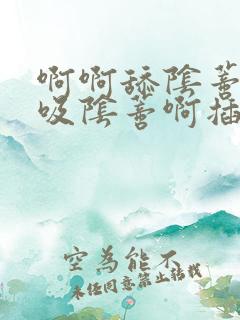 啊啊舔陰蓄
吸陰蓄啊插
空為能不
未经同意禁止转载